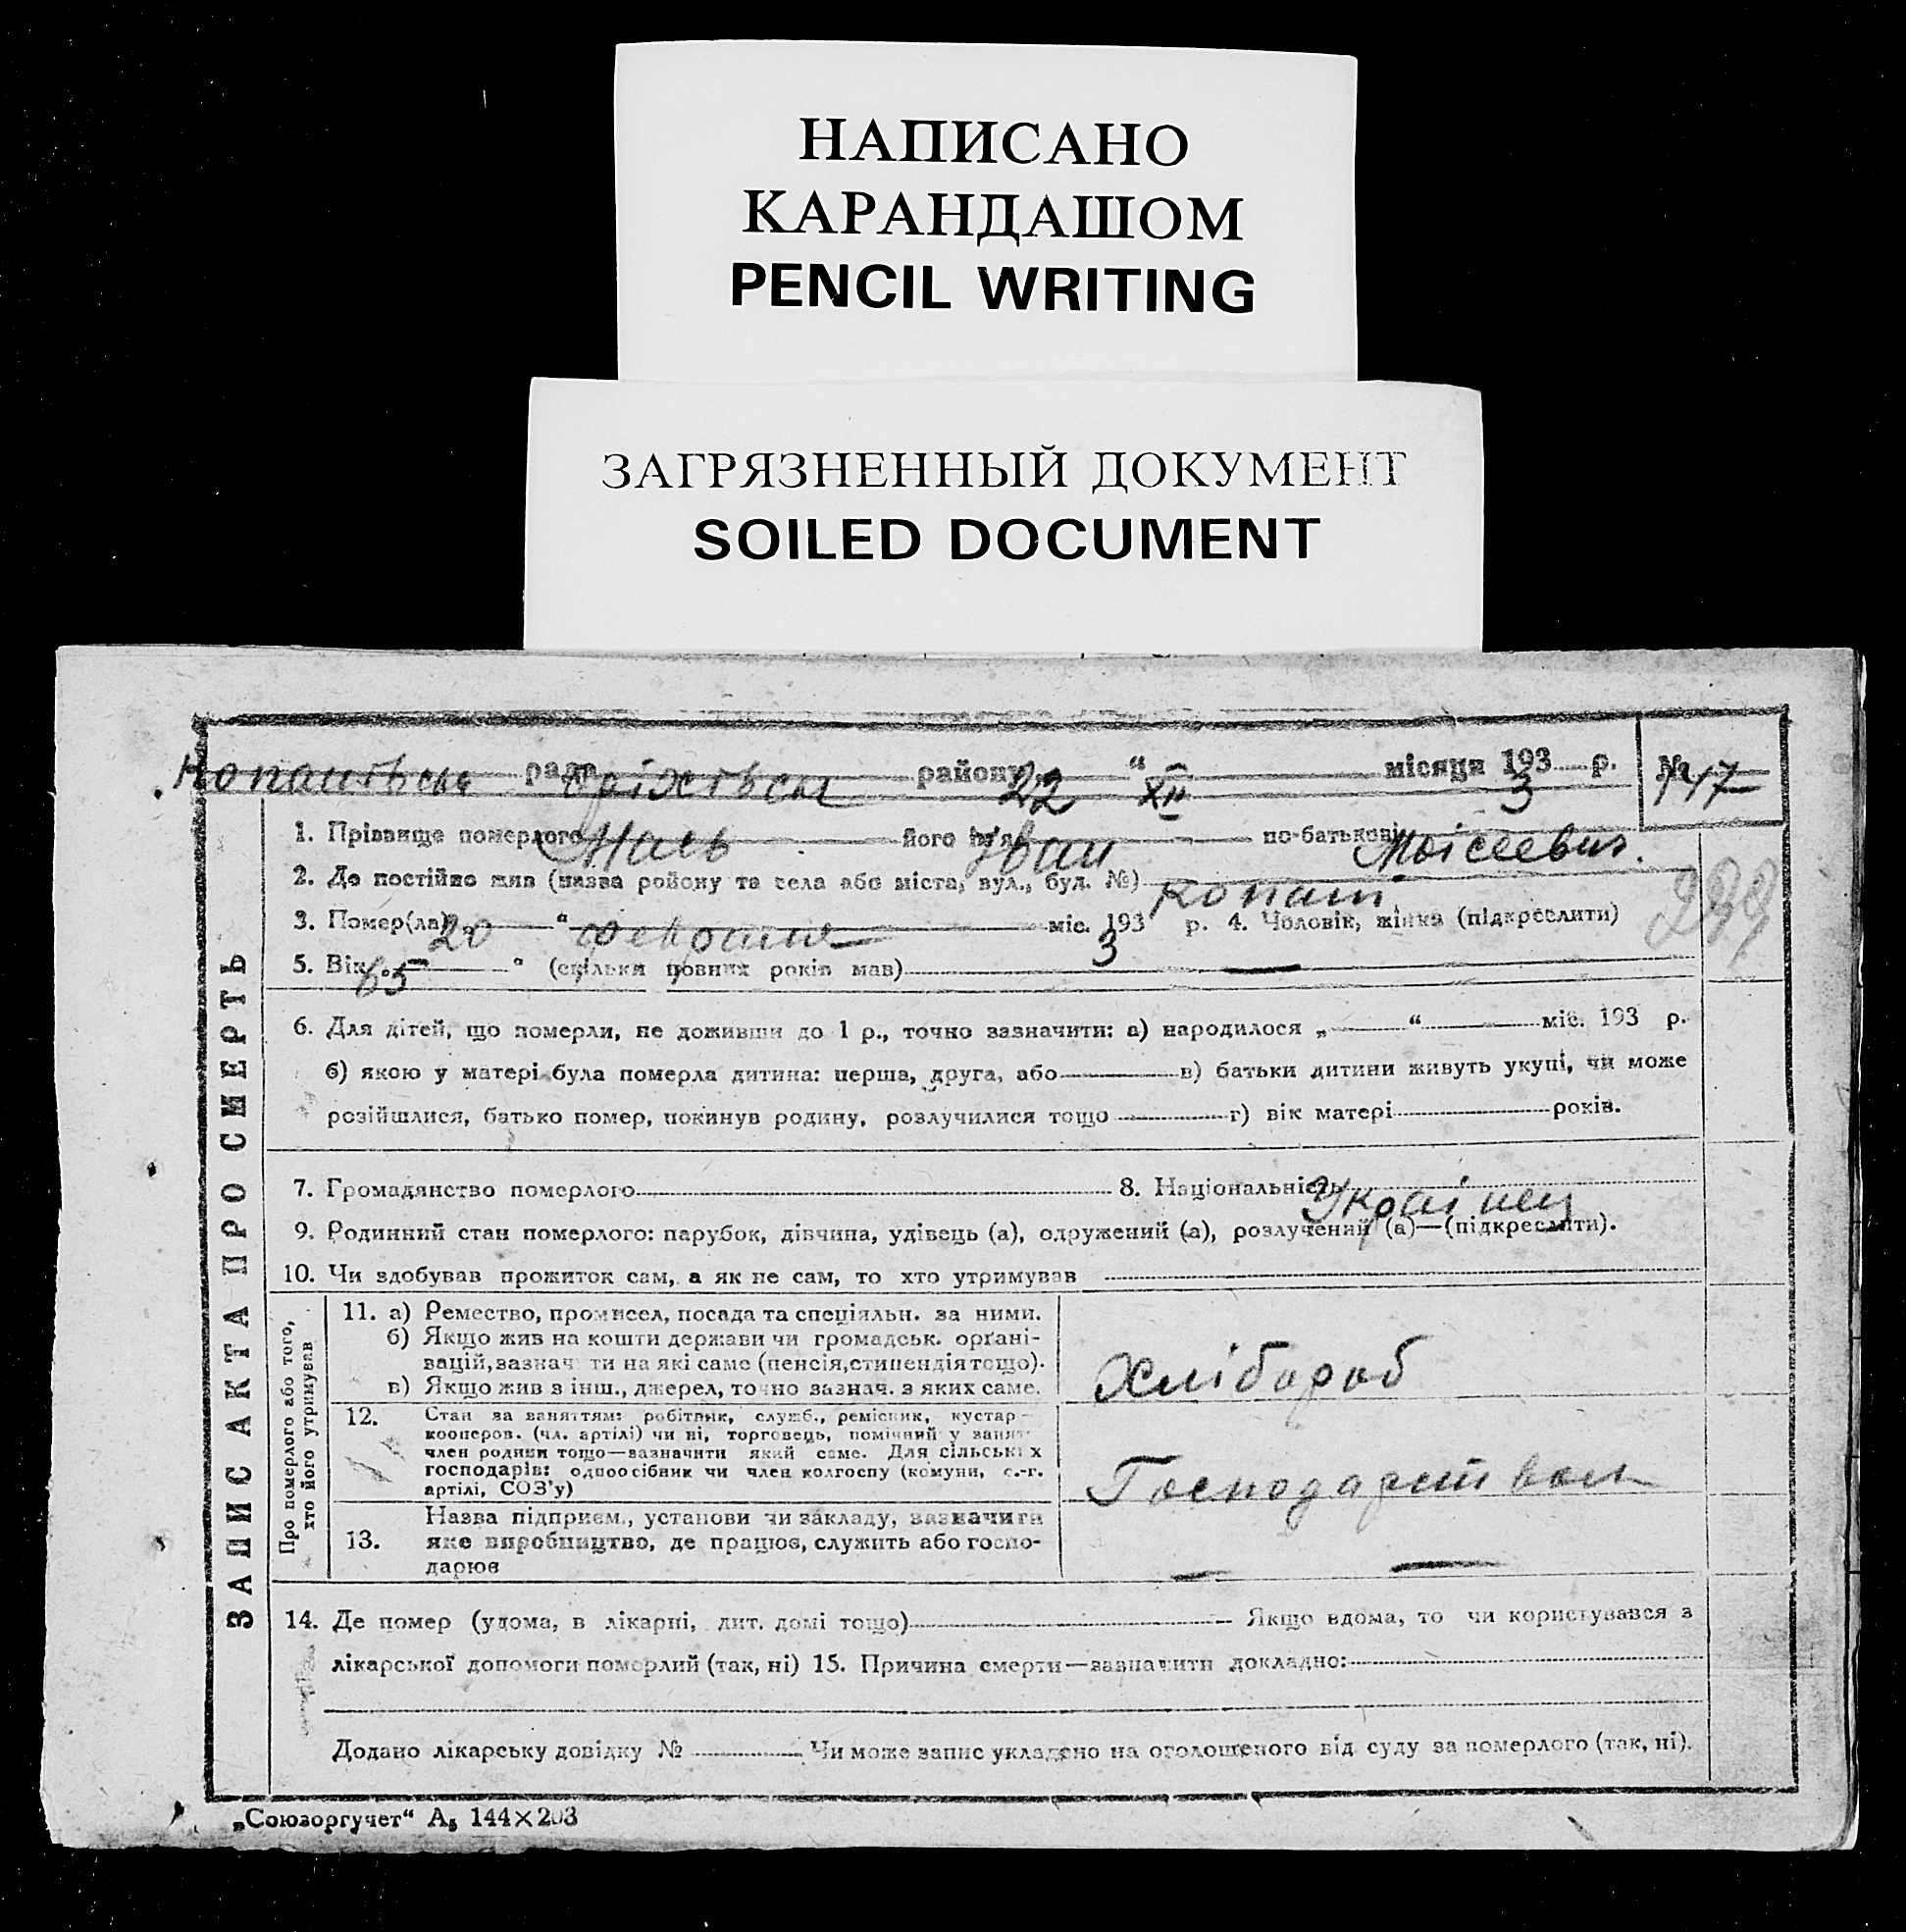 НАПИСАНО
КАРАНДАШОМ
PENCIL WRITING
ЗАГРЯЗНЕННЫЙ ДОКУМЕНТ
SOILED DOCUMENT
ради району 22 “ XII місяця 1933 р. №
1. Прізвище померлого його ім'я Іван по-батькові Моісеевич.
2. Де постійно жив (назва району та села або міста, вул., буд. №) Копани
3. Помер(ла) „20 “ міс. 1933 р. 4. Чоловік, жінка (підкреслити)
5. Вік „65 “ (скільки повних років мав)
6. Для дітей, що померли, не доживши до 1 р., точно зазначити: а) народилося „ “ міс. 193 р.
б) якою у матері була померла дитина: перша, друга, або в) батьки дитини живуть укупі, чи може
розійшлися, батько помер, покинув родину, розлучилися тощо г) вік матері років.
7. Громадянство померлого 8. Національність Украінец
9. Родинний стан померлого: парубок, дівчина, удівець (а), одружений (а), розлучений (а)—(підкреслити).
10. Чи здобував прожиток сам, а як не сам, то хто утримував
Про померлого або того, хто його утримував
11. а) Ремество, промисел, посада та спеціяльн. за ними.
б) Якщо жив на кошти держави чи громадськ. орґані-
зацій, зазначити на які саме (пенсія, стипендія тощо).
в) Якщо жив з інш., джерел, точно зазнач. з яких саме.
Хлібороб
12. Стан за заняттям: робітник, служб., ремісник, кустар—
кооперов. (чл. артілі) чи ні, торговець, помічний у занят.
член родини тощо—зазначити який саме. Для сільських
господарів: одноосібник чи член колгоспу (комуни, с.-г.
артілі, СОЗ'у)
13. Назва підприєм., установи чи закладу, зазначити
яке виробництво, де працює, служить або госпо-
дарює
14. Де помер (удома, в лікарні, дит. домі тощо) Якщо вдома, то чи користувався з
лікарської допомоги померлий (так, ні) 15. Причина смерти—зазначити докладно:
Додано лікарську довідку № Чи може запис укладено на оголошеного від суду за померлого (так, ні).
ЗАПИС АКТА ПРО СМЕРТЬ
„Союзоргучет“ А5 144×203